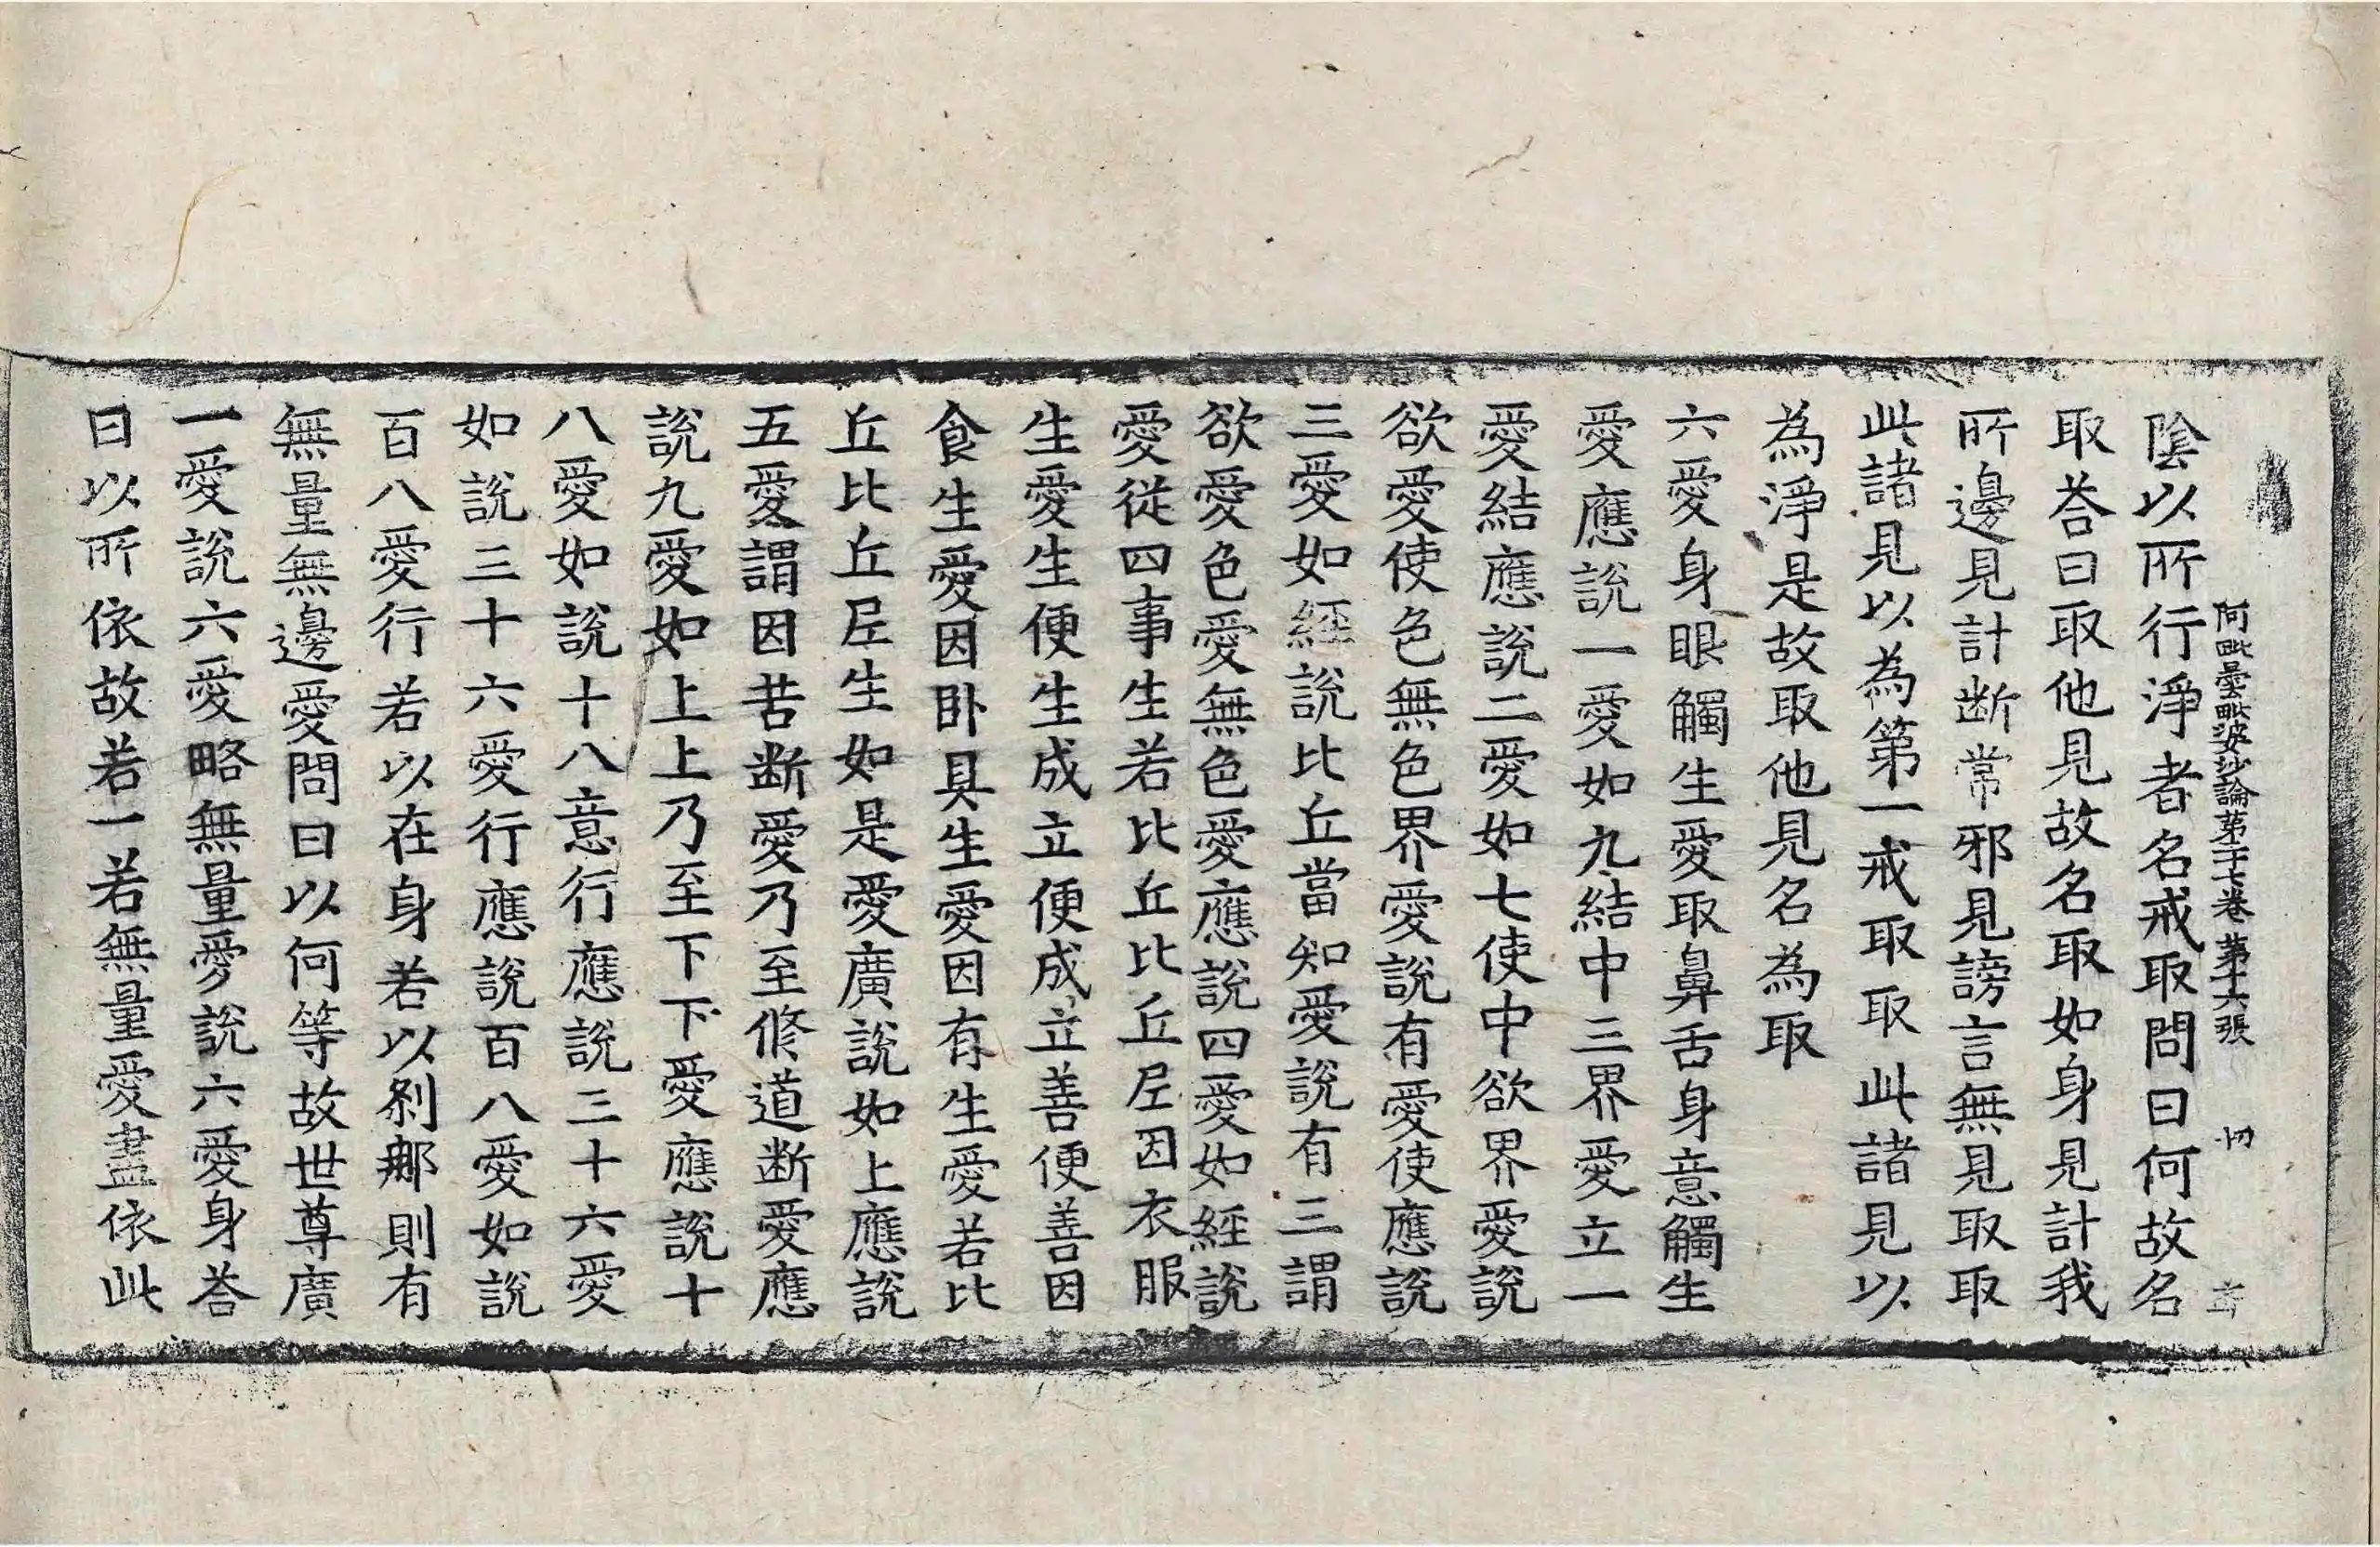 阿毗曇毗婆沙論第二十七卷 第十六張 切
陰以所行淨者名戒取問曰何故名
取荅曰取他見故名取如身見計我
所邊見計断常邪見謗言無見取取
此諸見以為第一戒取取此諸見以
為淨是故取他見名為取
六愛身眼觸生愛取鼻舌身意觸生
愛應說一愛如九結中三界愛立一
愛結應說二愛如七使中欲界愛說
欲愛使色無色界愛說有愛使應說
三愛如經說比丘當知愛說有三謂
欲愛色愛無色愛應說四愛如經說
愛從四事生若比丘比丘尼因衣服
生愛生便生成立便成立善便善因
食生愛因卧具生愛因有生愛若比
丘比丘尼生如是愛廣說如上應說
五愛謂因苦断愛乃至修道断愛應
說九愛如上上乃至下下愛應說十
八愛如說十八意行應說三十六愛
如說三十六愛行應說百八愛如說
百八愛行若以在身若以剎那則有
無量無邊愛問曰以何等故世尊廣
一愛說六愛略無量愛說六愛身荅
曰以所依故若一若無量愛盡依此